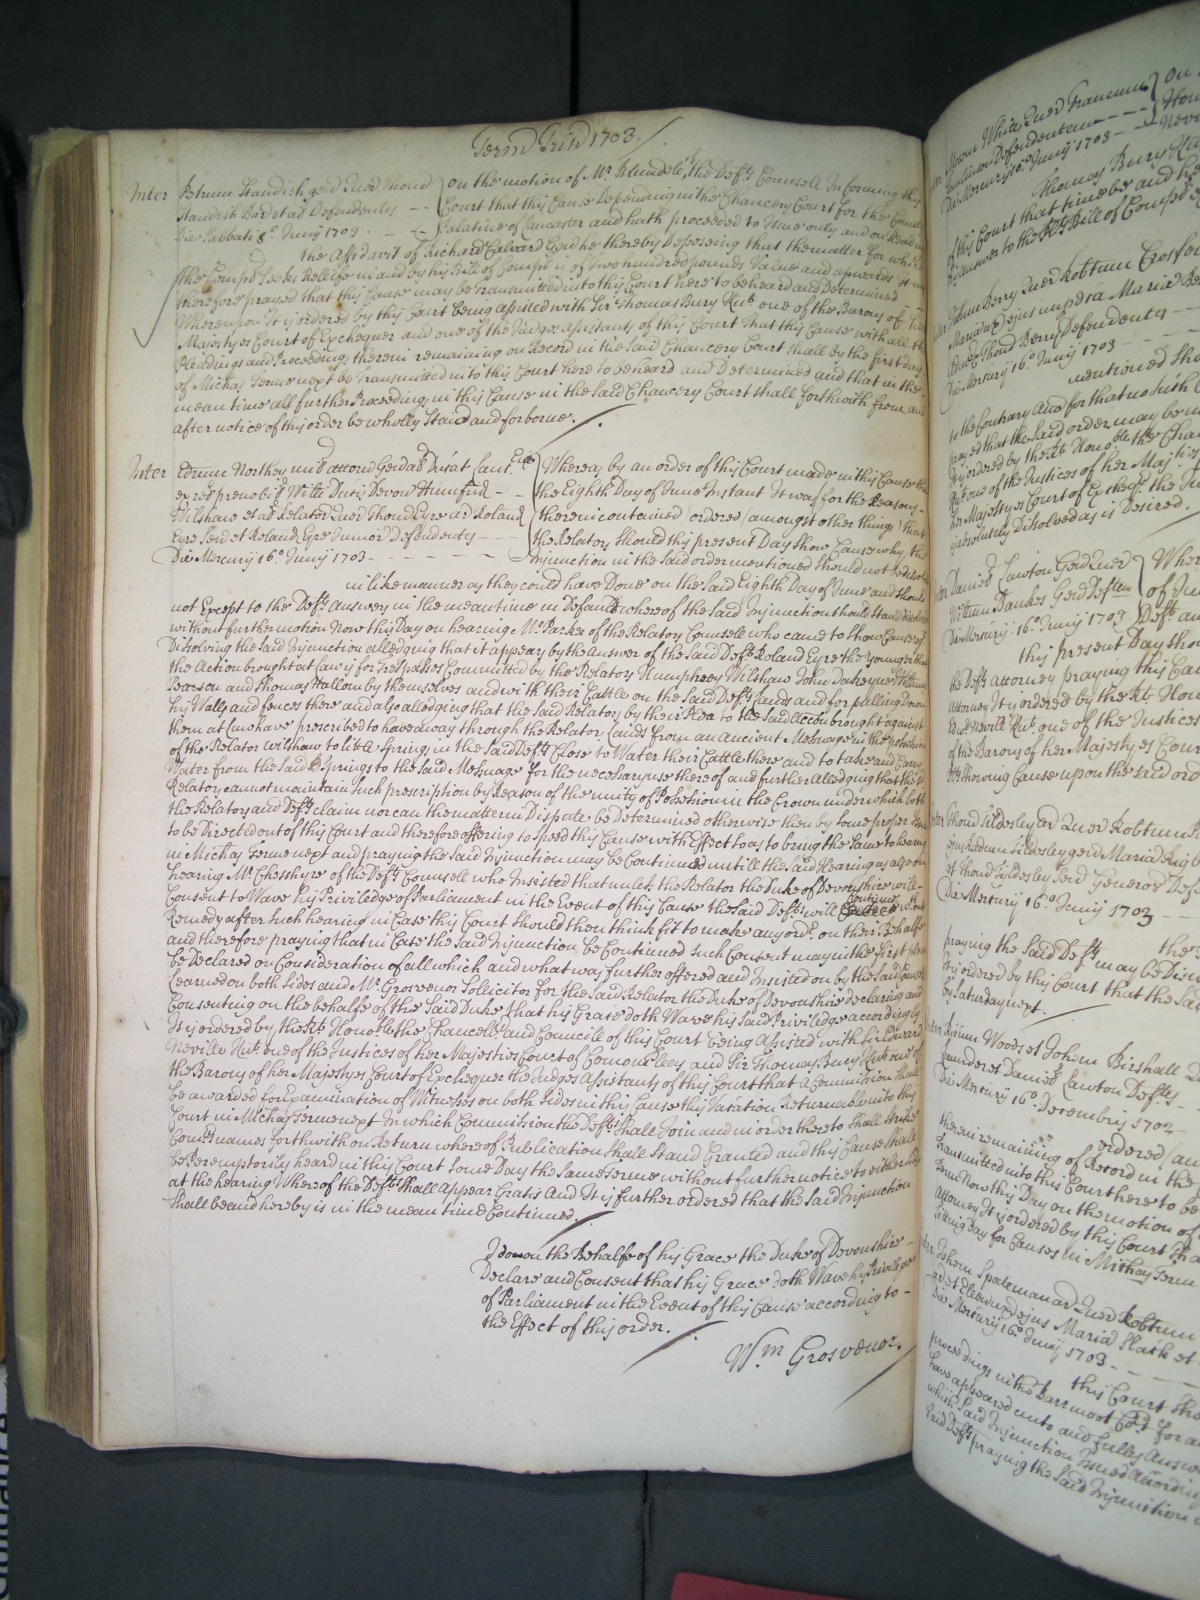 Termo Trin 1703
Inter Petrum Standish gen Quer Thomd On the motion of Mr. Blundel the Defts Counsell Informing this
Standish Bart et al Defendentes -- Court that this Cause Depending in the Chancery Court for the County
Die Sabbati 8o. Junij 1703 -- Palatine of Lancaster and hath proceeded to Issue only and on Reading
the Affidavit of Richard Calvard Gent he thereby Deposeing that the matter for which
the Compt Seeks Relleife in and by his Bill of Compt is of Two hundred pounds Value and upwards It was
therefore prayed that this Cause may be transmitted into this Court here to be heard and Determined
Whereupon It is ordered by this Court being assisted with Sir Thomas Bury Knt. one of the Barons of her
Majestyes Court of Exchequer and one of the Judges Assistants of this Court That this Cause with all the
Pleadings and Proceedings therein remaining on Record in the Said Chancery Court shall by the first day
of Michas Terme next be transmitted into this Court here to be heard and Determined and that in the
mean time all further Proceedings in this Cause in the Said Chancery Court shall forthwith from and
after notice of this order be wholly Staid and forborne.
Inter Edrum Northey mil attorn Gen Whereas by an order of this Court made in this Cause the
Willi Ducis Devon Humfrid -- the Eighth Day of June Instant It was for the Reasons
Wilshaw et al Relator Quer Thomd Eyre ar Roland therein contained ordered (amongst other things) that
Eyre Sen et Roland Eyre Junior Defendentes -- the Relators should this present Day Show Cause why the
Die Mercurij 16o. Junij 1703 -- Injunction in the said order mentioned Should not be disolved
in like manner as they could have Done on the Said Eighth Day of June and should
not Except to the Defts Answers in the meantime in Default whereof the Said Injunction should Stand Disolved
without further motion Now this Day on hearing Mr. Parker of the Relators Counsell who came to Show Cause agt
Disolving the Said Injunction alledging that it appears by the Answer of the Said Deft Roland Eyre the younger that
the Action brought at Law is for Trespasses Committed by the Relators Humphrey Wilshaw John Dakeyne William
Pearson and Thomas Hallom by themselves and with their Cattle on the Said Defts Lands and for pulling Down
his Walls and fences there and also alledging that the Said Relators by their Plea to the Said Action brought against
them at Law have prescribed to have a way through the Relators Lands from an ancient Messuage in the possession
of the Relator Wilshaw to little Springs in the Said Defts Close to Water their Cattle there and to take and Carry
Water from the Said Springs to the Said Messuage for the necessary use thereof and further alledging that the
Relators cannot maintain Such prescription by Reason of the unity of Possession in the Crown under which both
the Relators and Defts claim nor can the matter in Dispute be Determined otherwise then by Some proper Issue
to be Directed out of this Court and therefore offering to Speed this Cause with Effect so as to bring the Same to hearing
in Michas Terme next and praying the Said Injunction may be Continued untill the Said Hearing as also on
hearing Mr. Chesshyre of the Defts Counsell who Insisted that unless the Relator the Duke of Devonshire will
Consent to Wave his Priviledge of Parliament in the Event of this Cause the Said Defts will Continue without
Remedy after Such hearing in Case this Court Should then think fit to make any ordr. on their Behalfe
and therefore praying that in Case the Said Injunction be Continued Such Consent may in the first place
be Declared on Consideration of all which and what was further offered and Insisted on by the Said Counsel
Learned on both Sides and Mr. Grosvenor Sollicitor for the Said Relator the Duke of Devonshire declaring and
Consenting on the behalfe of the Said Duke that his Grace doth Wave his Said Priviledge accordingly
It is ordered by the Rt. Honoble the Chancellr and Councile of this Court being Assisted with Sir Edward
Neville Knt. one of the Justices of her Majesties Court of Comon Pleas and Sir Thomas Bury Knt one of
the Barons of her Majestyes Court of Exchequer the Judges Assistants of this Court that a Commission shall
be awarded for Examination of Witnesses on both sides in this Cause this Vacation Returnable into this
Court in Michas Terme next In which Commission the Defts Shall Joyn and in order thereto Shall strike
Comrs names forthwith on Return whereof Publication shall Stand Granted and this Cause shall
be Peremptorily heard in this Court Some Day the Same Terme without further notice to either side
at the hearing Whereof the Defts Shall Appear Gratis And It is further ordered that the Said Injunction
Shall be and hereby is in the mean time Continued.
I do on the Behalfe of his Grace the Duke of Devonshire
Declare and Consent that his Grace doth Wave his Privilege
of Parliament in the Event of this Cause according to
the Effect of this order.
Wm. Grosvenor.
On
Die Mercurij 16o. Junij 1703
Thomas Bury
of this Court that time be and
his Answer to the Plts Bill of Compt
John Berry Quer Robtum
Defendentes
Die Mercurij 16o. Junij 1703 --
mentioned Sho
to the Contrary And for that no such
prayed that the Said order may be
It is ordered by the Rt. Honoble the Chan
Knt one of the Justices of her Majties
her Majestyes Court of Exchequer the Ju
absolutely Disolved as is Desired.
Daniel Lawton Gen Quer Wher
Willum Bankes Gen Deften of Ju
Die Mercurij 16o. Junij 1703 Defts
this present Day Sho
the Defts attorney praying this Cau
Attorney It is ordered by the Rt. Hon
Edwd Nevill Knt. one of the Justices
of the Barons of her Majestyes Cour
Showing Cause upon the said ord
Thomd Tildesley ar Quer Robtum
Die Mercurij 16o. Junij 1703 --
the
praying the Said Deft may be
It is ordered by this Court that the Sa
by Saturday next.
Woods et Johem Birshall
Daniel Lawton Deftes
Die Mercurij 16o. Decembris 1702
ordered (am
therein remaining of Record in the
transmitted into this Court here to be
Terme Now this Day on the motion of
Attorney It is ordered by this Court that
Sitting day for Causes in Michas Term
Johem Spateman ar Quer Robtum
Maria Slack et
Die Mercurij 16o. Junij 1703 --
this Court
proceedings in the Barrmoot Cort for
have appeared unto and fully Answ
which Said Injunction Issued According
Said Deft praying the Said Injunction